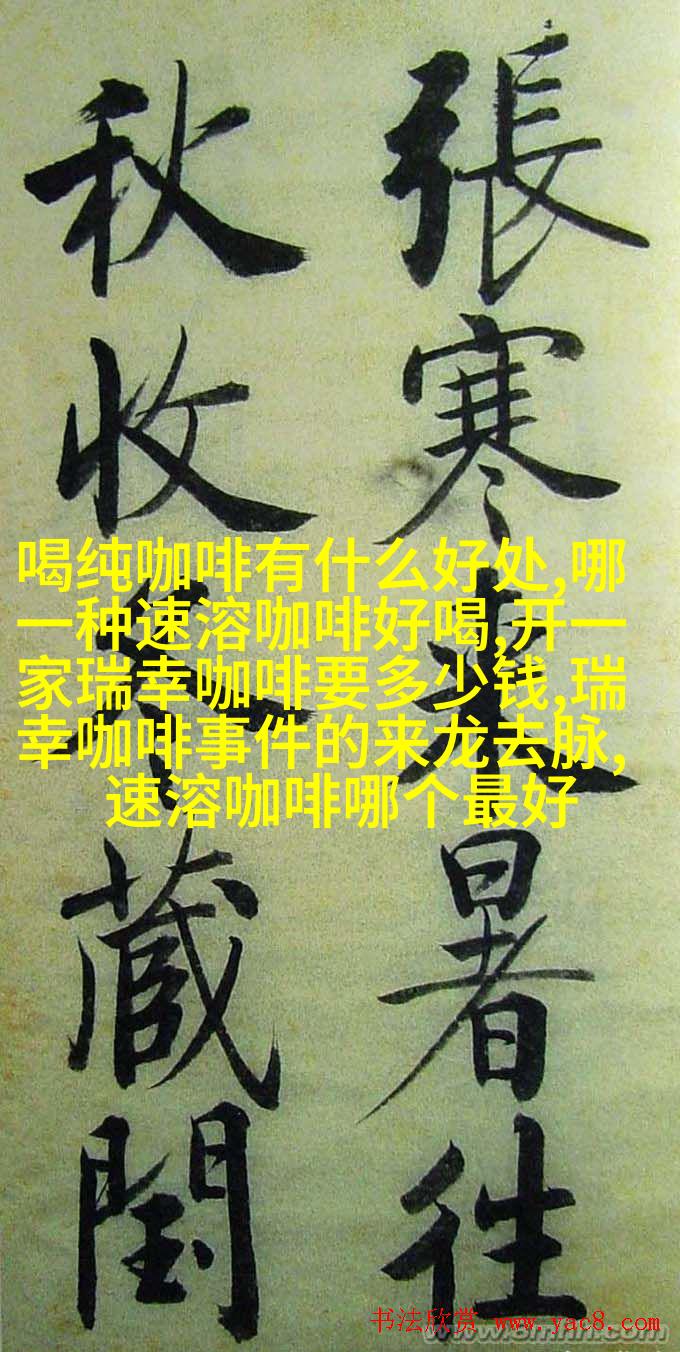 張寒来暑往
秋收冬蔵閏
喝纯咖啡有什么好处,哪
一种速溶咖啡好喝,开一
家瑞幸咖啡要多少钱,瑞
幸咖啡事件的来龙去脉,
速溶咖啡哪个最好
书法欣赏 www.yac8.com